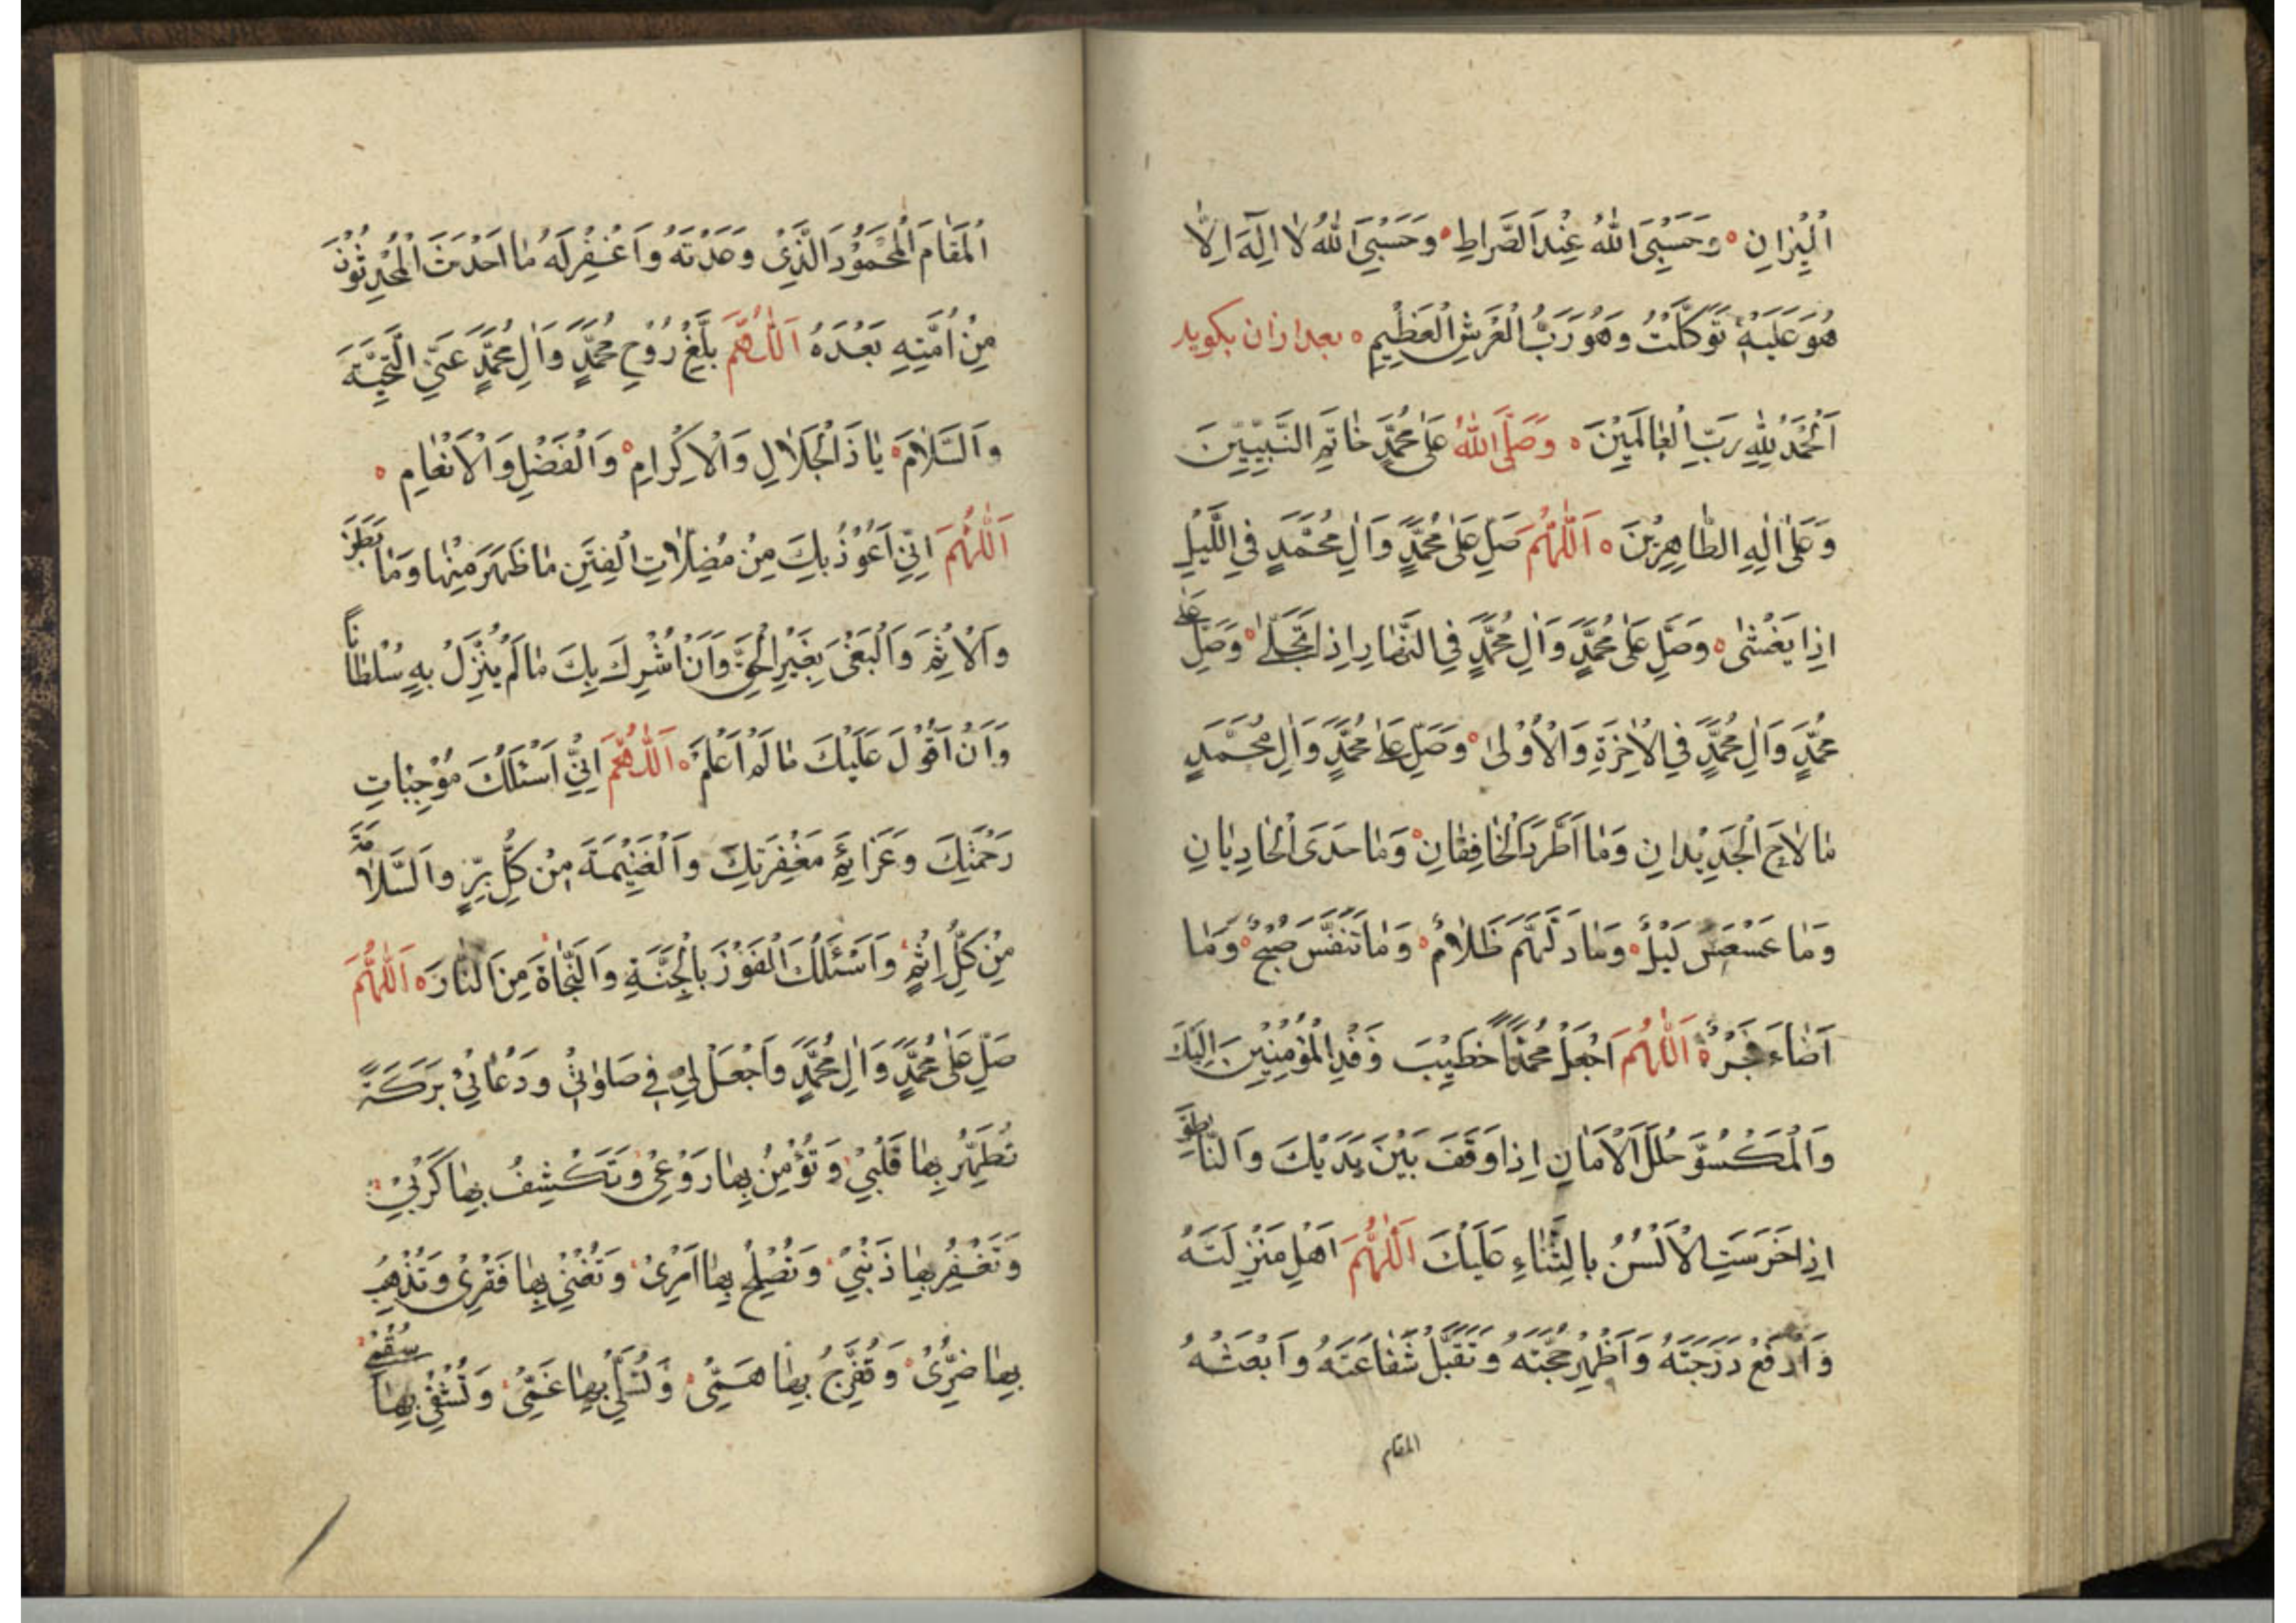 الْمِيزانِ وَحَسْبِيَ اللهُ عِنْدَ الصِّراطِ وَحَسْبِيَ اللهُ لا اِلهَ اِلّا
هُوَ عَلَيْهِ تَوَكَّلْتُ وَهُوَ رَبُّ الْعَرْشِ الْعَظِيمِ بعد ازان بكويد
اَلْحَمْدُ لِلّهِ رَبِّ الْعالَمِيْنَ وَصَلَّى اللهُ عَلى مُحَمَّدٍ خاتَمِ النَّبِيِّيْنَ
وَعَلى الِهِ الطّاهِرِيْنَ اَللّهُمَّ صَلِّ عَلى مُحَمَّدٍ وَالِ مُحَمَّدٍ فِي اللَّيْلِ
اِذا يَغْشى وَصَلِّ عَلى مُحَمَّدٍ وَالِ مُحَمَّدٍ فِي النَّهارِ اِذا تَجَلّى وَصَلِّ عَلى
مُحَمَّدٍ وَالِ مُحَمَّدٍ فِي الْاخِرَةِ وَالْاُوْلى وَصَلِّ عَلى مُحَمَّدٍ وَالِ مُحَمَّدٍ
ما لاحَ الْجَدِيْدانِ وَما اَطَّرَدَ الْخافِقانِ وَما حَدَى الْحادِيانِ
وَما عَسْعَسَ لَيْلٌ وَما ادْلَهَمَّ ظَلامٌ وَما تَنَفَّسَ صُبْحٌ وَما
اَضاءَ فَجْرٌ اَللّهُمَّ اجْعَلْ مُحَمَّدًا خَطِيْبَ وَفْدِ الْمُؤْمِنِيْنَ اِلَيْكَ
وَالْمَكْسُوَّ حُلَلَ الْاَمانِ اِذا وَقَفَ بَيْنَ يَدَيْكَ وَالنّاطِقَ
اِذا خَرِسَتِ الْاَلْسُنُ بِالثَّناءِ عَلَيْكَ اَللّهُمَّ اَعْلِ مَنْزِلَتَهُ
وَارْفَعْ دَرَجَتَهُ وَاَظْهِرْ حُجَّتَهُ وَتَقَبَّلْ شَفاعَتَهُ وَابْعَثْهُ
المقام
الْمَقامَ الْمَحْمُوْدَ الَّذِيْ وَعَدْتَهُ وَاغْفِرْ لَهُ ما اَحْدَثَ الْمُحْدِثُوْنَ
مِنْ اُمَّتِهِ بَعْدَهُ اَللّهُمَّ بَلِّغْ رُوْحَ مُحَمَّدٍ وَالِ مُحَمَّدٍ عَنِّي التَّحِيَّةَ
وَالسَّلامَ يا ذَا الْجَلالِ وَالْاِكْرامِ وَالْفَضْلِ وَالْاَنْعامِ
اَللّهُمَّ اِنِّيْ اَعُوْذُ بِكَ مِنْ مُضِلّاتِ الْفِتَنِ ما ظَهَرَ مِنْها وَما بَطَنَ
وَالْاِثْمَ وَالْبَغْىَ بِغَيْرِ الْحَقِّ وَاَنْ اُشْرِكَ بِكَ ما لَمْ يُنَزِّلْ بِهِ سُلْطانًا
وَاَنْ اَقُوْلَ عَلَيْكَ ما لَمْ اَعْلَمْ اَللّهُمَّ اِنِّيْ اَسْئَلُكَ مُوْجِباتِ
رَحْمَتِكَ وَعَزائِمَ مَغْفِرَتِكَ وَالْغَنِيْمَةَ مِنْ كُلِّ بِرٍّ وَالسَّلامَةَ
مِنْ كُلِّ اِثْمٍ وَاَسْئَلُكَ الْفَوْزَ بِالْجَنَّةِ وَالنَّجاةَ مِنَ النّارِ اَللّهُمَّ
صَلِّ عَلى مُحَمَّدٍ وَالِ مُحَمَّدٍ وَاجْعَلْ لِيْ فِيْ صَلواتِيْ وَدُعائِيْ بَرَكَةً
تُطَهِّرُ بِها قَلْبِيْ وَتُؤْمِنُ بِها رَوْعَتِيْ وَتَكْشِفُ بِها كَرْبِيْ
وَتَغْفِرُ بِها ذَنْبِيْ وَتُصْلِحُ بِها اَمْرِىْ وَتُغْنِيْ بِها فَقْرِىْ وَتُذْهِبُ
بِها ضُرِّىْ وَتُفَرِّجُ بِها هَمِّىْ وَتُسَلِّيْ بِها غَمِّىْ وَتَشْفِيْ بِها سُقْمِيْ